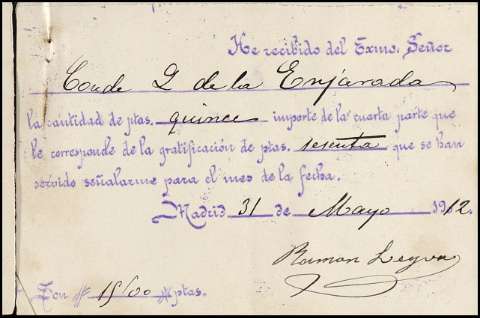 He recibido del Exmo. Señor
Conde D de la Enjarada
la cantidad de ptas. quince importe de la cuarta parte que
le corresponde de la gratificación de ptas. sesenta que se han
servido señalarme para el mes de la fecha.
Madrid 31 de Mayo 1912.
Ramon Leyva
Son # 15/00 # ptas.